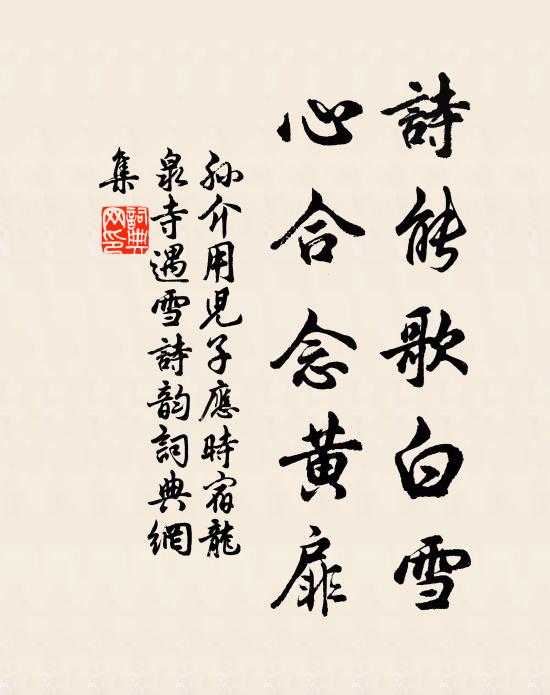 詩能歌白雪
心合念黄扉
孙介用児子應時宿龍
泉寺遇雪詩韵詞典網
集
詞典
网印